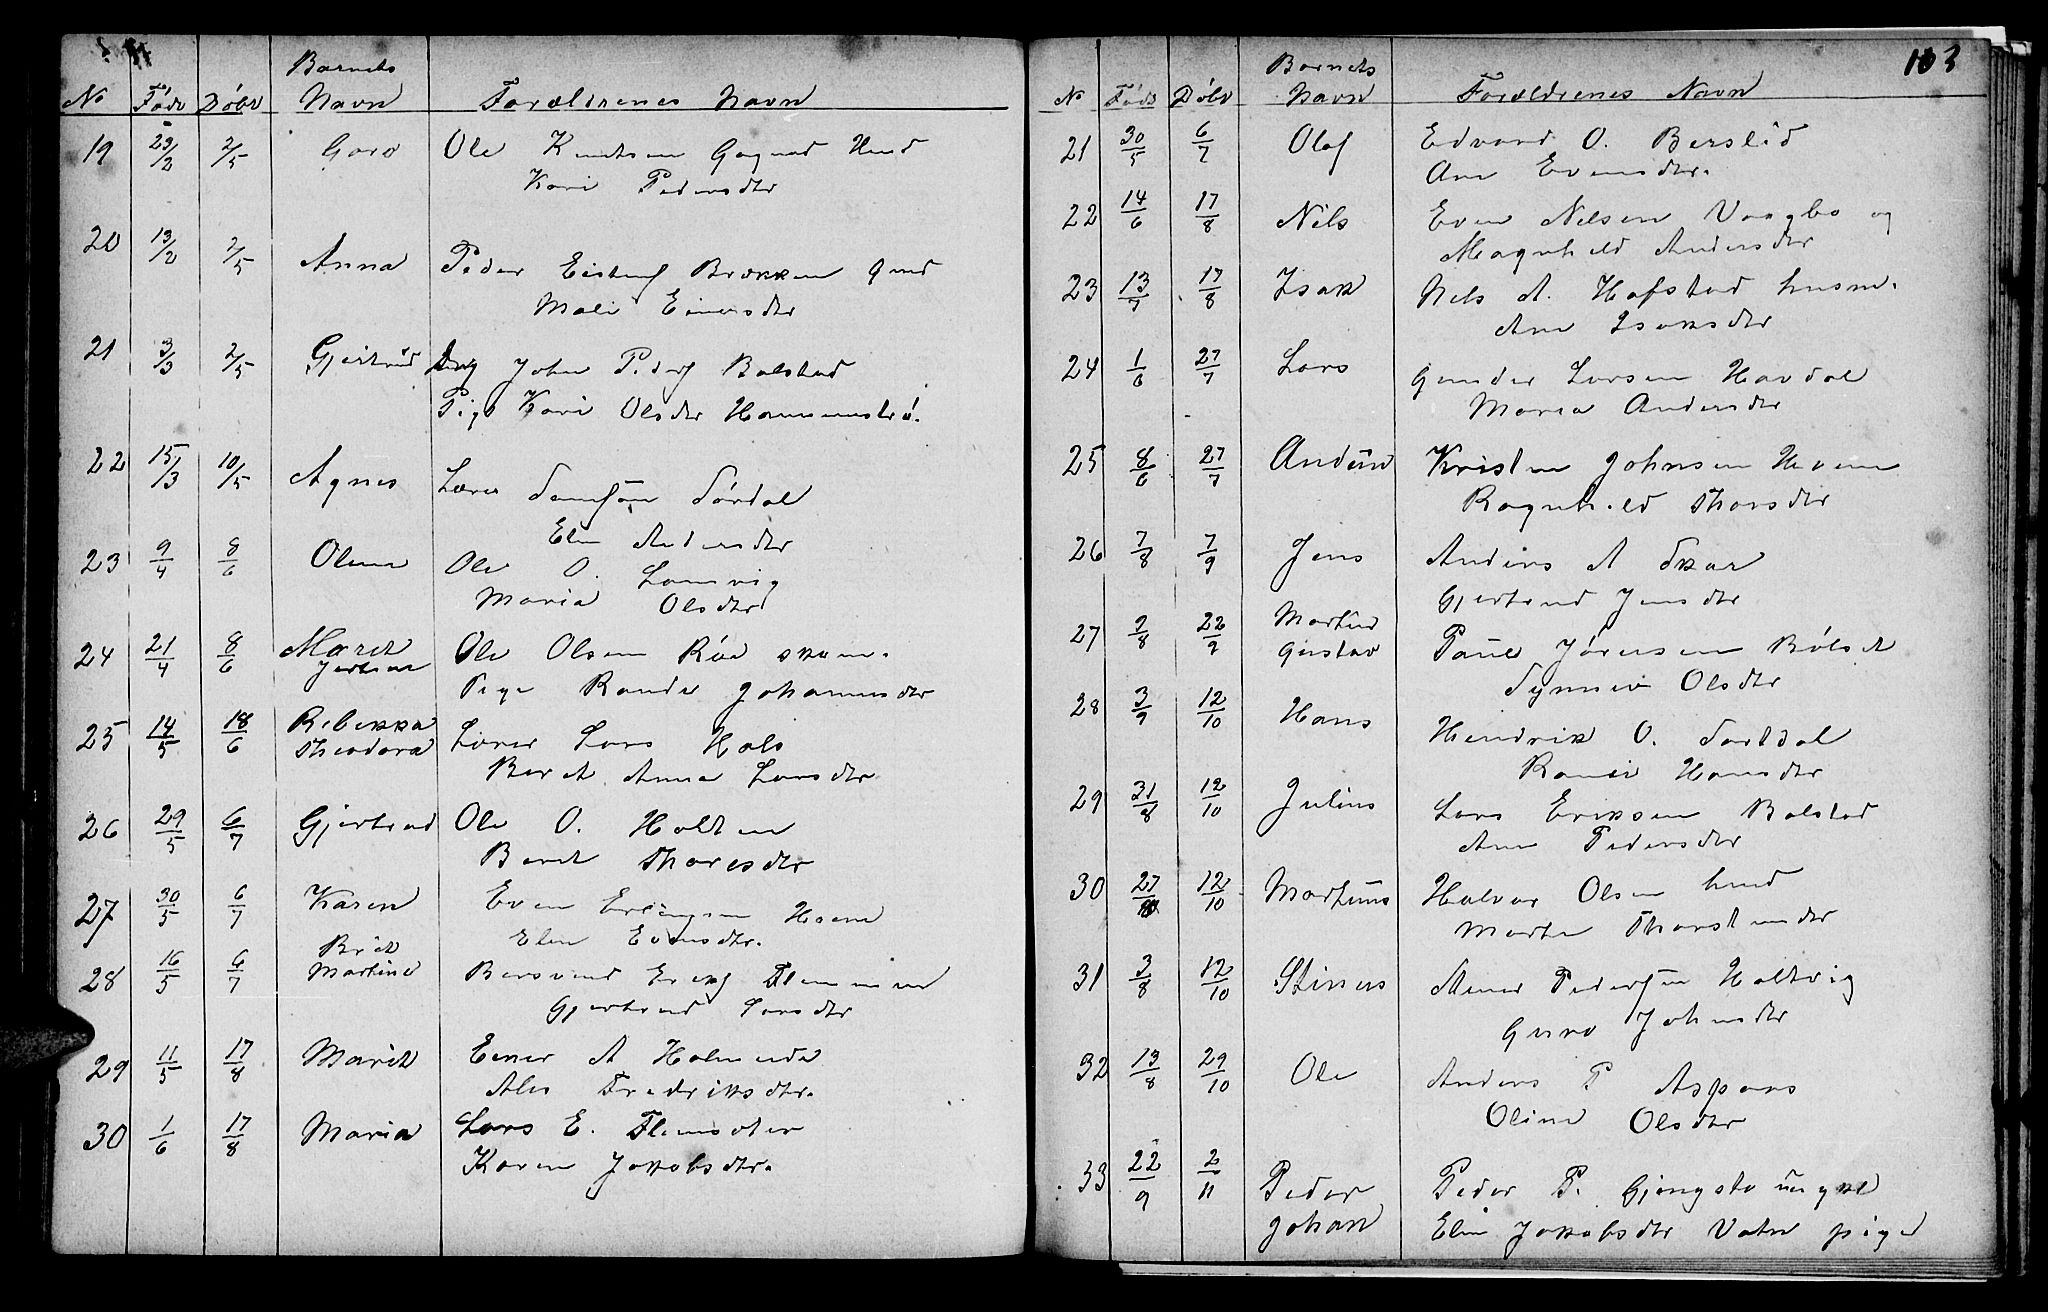 Barnets
No Født Døbt Navn Forældrenes Navn
19 29/2 2/5 Guro Ole Knutsen Gagnad
Kari Pedersdtr
20 13/2 2/5 Anna Peder Eistensf Brækken
Mali Einersdtr
21 3/3 2/5 Gjertrud Ung John Pedersf Bolstad
Pige Kari Olsdtr
22 15/3 10/5 Agnes Lærer Samson Sørdal
Elin Andersdtr
23 9/4 8/6 Olina Ole O. Lomvig
Maria Olsdtr
24 21/4 8/6 Maret Ole Olsen Røe skom.
Pige Randi Johannesdtr
25 14/5 18/6 Rebekka Theodora Lærer Lars Hals
Beret Anna Larsdtr
26 29/5 6/7 Gjertrud Ole O. Holten
Beret Thoresdtr
27 30/5 6/7 Karen Even Erlingsen Hoem
Elin Evensdtr.
Brit
28 16/5 6/7 Martine Bersvend
Gjertrud Larsdtr
29 11/5 17/8 Marit Einer A
Ales Fredriksdtr.
30 1/6 17/8 Maria Lars E. Flemsæter
Karen Jakobsdtr.
103
Barnets
No Født Døbt Navn Forældrenes Navn
21 30/5 6/7 Olaf Edvard O. Berslid
Ane Evensdtr.
22 14/6 17/8 Nils Even Nilsen Vaagbø og
Magnhild Andersdtr
23 13/7 17/8 Isak Nils A. Hofstad husm.
Ane Isaksdtr
24 1/6 27/7 Lars Gunder Larsen Havdal
Maria Andersdtr
25 8/6 27/7 Kristen Johnsen
Ragnhild Thorsdtr
26 7/8 7/9 Jens Anders A Skar
Gjertrud Jensdtr
Martin
27 9/8 22/9 Gustav Paul Jørnsen Bølset
Synnev Olsdtr
28 3/9 12/10 Hans Hendrik O. Sortdal
Randi Hansdtr
29 31/8 12/10 Julius Lars Eriksen Bolstad
Ane Pedersdtr
30 27/8 12/10 Martinus Halvor Olsen
Marta Thorstendtr
31 3/8 12/10 Stinus Einer Pedersen Holtvig
Guro Johnsdtr
32 13/8 29/10 Ole Anders P Aspaas
Olina Olsdtr
33 22/9 2/11 Peder Peder P. Gjengstø ungkl
Johan Elin Jakobsdtr Vatn pige